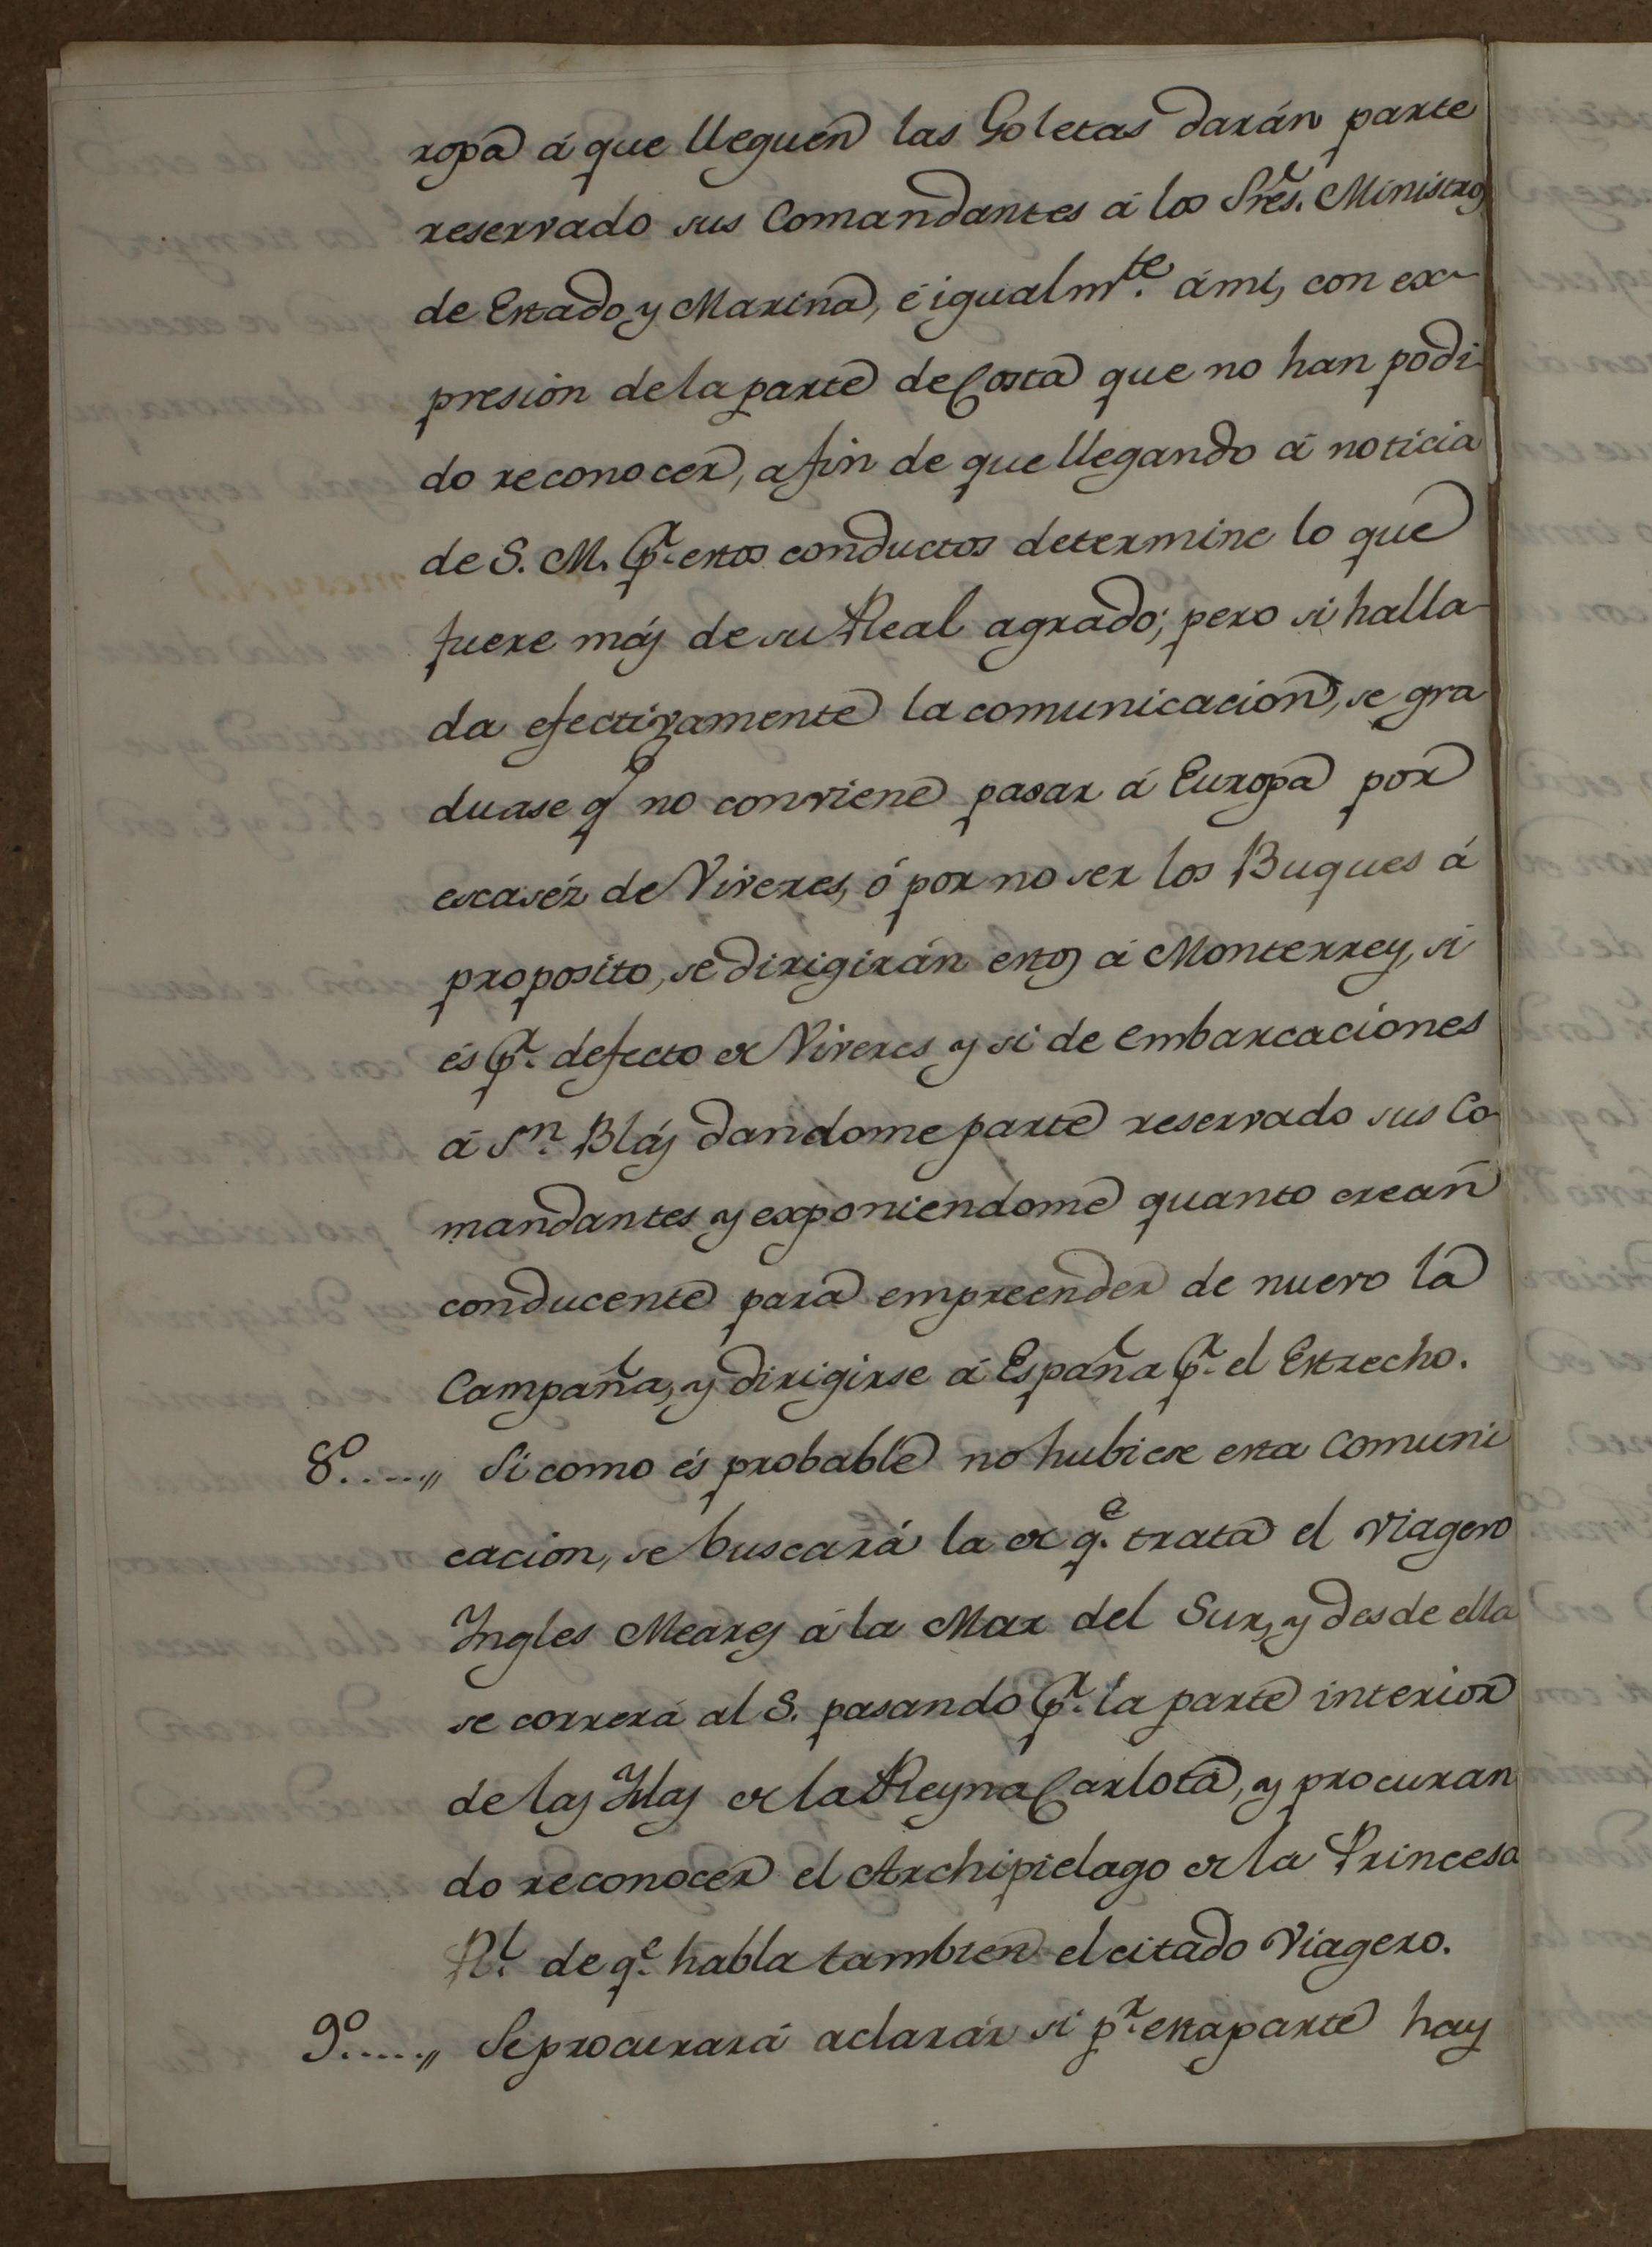 ropa á que lleguen las Goletas darán parte
reservado sus Comandantes á los Sres. Ministros
de Estado y Marina, é igualmte. á mi, con ex-
presion de la parte de Costa que no han podi-
do reconocer, a fin de que llegando á noticia
de S. M. pr. estos conductos determine lo que
fuere más de su Real agrado; pero si halla-
da efectivamente la comunicacion, se gra
duase q no conviene pasar á Europa por
escaséz de Viveres, ó por no ser los Buques á
proposito, se dirigirán estos á Monterrey, si
és pr. defecto de Viveres y si de embarcaciones
á Sn. Blás dandome parte reservado sus Co-
mandantes y exponiendome quanto crean
conducente para empreender de nuevo la
Campaña, y dirigirse á España pr. el Estrecho.
8º....,, Si como és probable no hubiere esta Comuni
cacion, se buscará la de qe. trata el viagero
Yngles Meares á la Mar del Sur, y desde ella
se correrá al S. pasando pr. la parte interior
de las Yslas de la Reyna Carlota, y procuran
do reconocer el Archipielago de la Princesa
Rl. de qe. habla tambien el citado Viagero.
9º....,, Se procurará aclarár si pr. esta parte hay